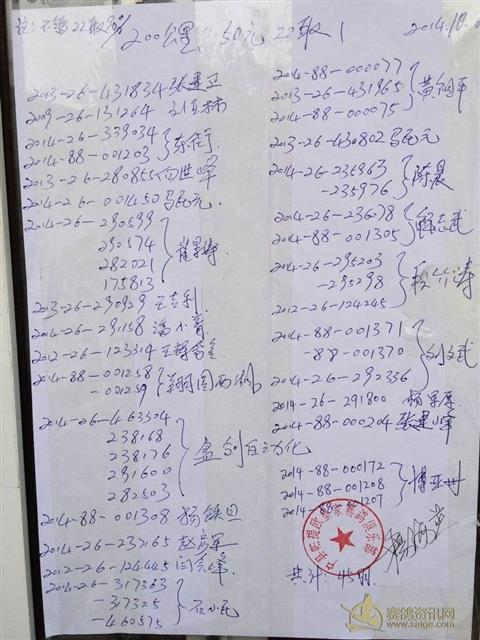 注: 不够22取90%
200公里, 50元 22取1
2014.10.
2013-26-431834 张建卫
2009-26-131264
2014-26-339034
2014-88-001203
2013-26-280855 向世峰
2014-26-001450 马民元
2014-26-290599
290574
282021
175813
2013-26-290929 王吉利
2014-26-291158 潘小青
2012-26-123314
2014-88-001258
-001259
2014-26-463504
238168
238176
291600
282503
自动化
2014-88-001308 杨铁旦
2014-26-237165
2012-26-124445
2014-26-317363
-317325
-460575
石小民
2014-88-000077
2013-26-431965
2014-88-000075
2013-26-430802 马民元
2014-26-235963
-235976
陈晨
2014-26-236078
2014-88-001305
2014-26-295203
-295298
2012-26-124245
2014-88-001371
-88-001370
2014-26-292336
刘文武
2014-26-291800 杨思厚
2014-88-000204 张建峰
2014-88-000172
2014-88-001208
2014-88-001207
共计: 45羽.
赛鸽资讯网
www.saige.com